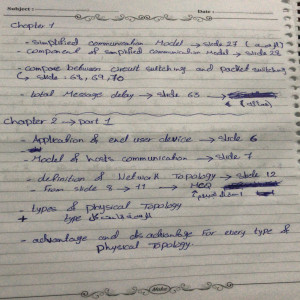 Subject :
Date :
Chapter 1
- simplified communication Model → slide 27
- Component of simplified communication Model → slide 28
- compare between circuit switching and packet switching
↳ slide : 68, 69, 70
- total Message delay → slide 63 →
Chapter 2 → part 1
- Application & end user device → slide 6
- Model of hosts communication → slide 7
- definition of Network Topology → slide 12
- From slide 8 → 11 → MCQ
- types of physical Topology
+ type
- advantage and disadvantage For every type of
physical Topology.